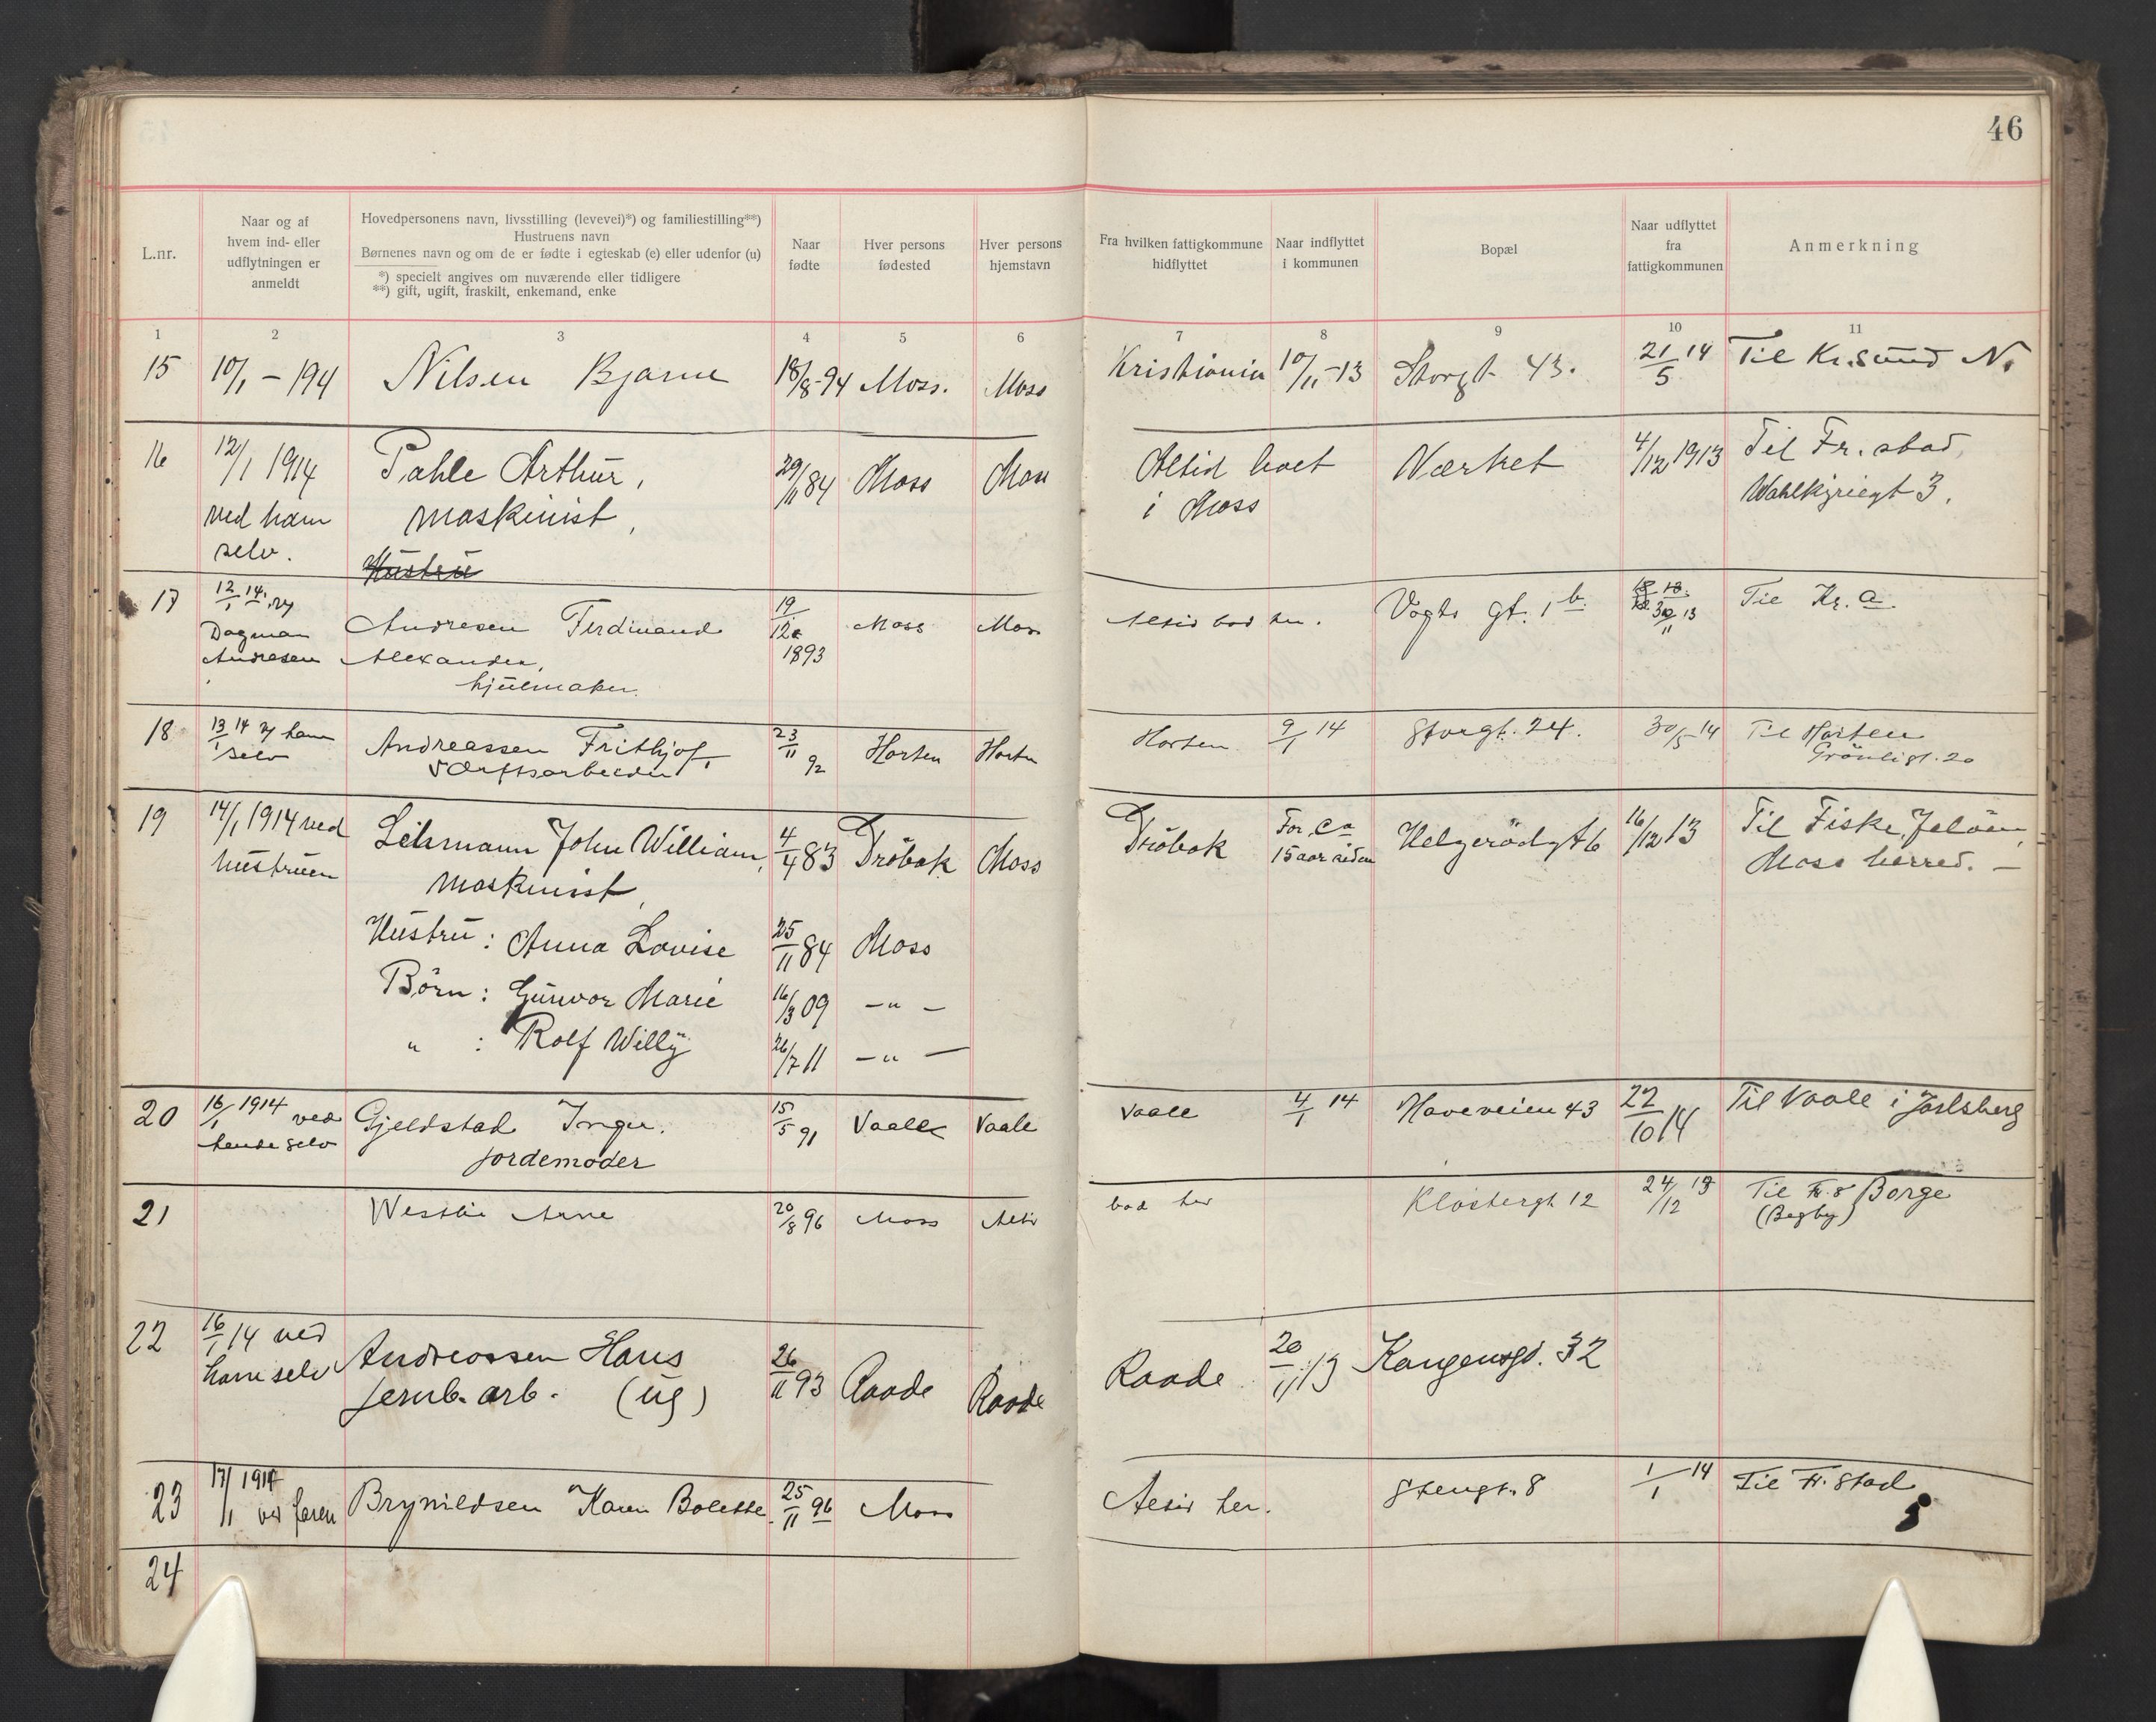 46
L.nr.
Naar og af
hvem ind- eller
udflytningen er
anmeldt
Hovedpersonens navn, livsstilling (levevei)*) og familiestilling**)
Hustruens navn
Børnenes navn og om de er fødte i egteskab (e) eller udenfor (u)
*) specielt angives om nuværende eller tidligere
**) gift, ugift, fraskilt, enkemand, enke
Naar
fødte
Hver persons
fødested
Hver persons
hjemstavn
Fra hvilken fattigkommune
hidflyttet
Naar indflyttet
i kommunen
Bopæl
Naar udflyttet
fra
fattigkommunen
Anmerkning
1 2 3 4 5 6 7 8 9 10 11
15 10/1 - 194 Nilsen Bjarne 18/8-94 Moss. Moss Kristiania 10/11-13 Storgt 43. 21/5 14 Til Kr.sund N.
16 12/1 1914 Pahle Arthur, 29/11 84 Moss Moss Altid boet Værket 4/12 1913 Til Fr.stad,
ved ham maskinist, i Moss 3.
selv. Hustru
17 12/1 14. Andresen Ferdinand 19/12 Moss Moss Altid bod her. Vogts gt. 1 b. 30/11 13 Til Kr.a
Dagmar Alexander, 1893
Andresen hjulmaker.
18 13/1 14 v/ ham Andreassen Frithjof, 23/11 92 Horten Horten Horten 9/1 14 Storgt. 24. 30/5 14 Til Horten
selv værftsarbeider Grönligt. 20
19 14/1 1914 ved John William, 4/4 83 Dröbak Moss Dröbak For ca Helgerödgt 6 16/12 13 Til Fiske, Jelöen,
hustruen maskinist, 15 aar siden Moss herred. —
Hustru : Anna Lovise 25/11 84 Moss
Börn : Gunvor Marie 16/3 09 — " —
" : Rolf Willy 26/7 11 — " —
20 16/1 1914 ved Gjeldstad Inga. 15/5 91 Vaale Vaale Vaale 4/1 14 Haveveien 43 22/10 14 Til Vaale i Jarlsberg
hende selv jordemoder
21 Westlie Arne 20/8 96 Moss Altid bod her Klostergt 12 24/12 13 Til Borge
(Begby)
22 16/1 14 ved Andreassen Hans 26/11 93 Raade Raade Raade 20/11 13 Kongensgt. 32
ham selv jernb. arb. (ug)
23 17/1 1914 Brynildsen Karen Bolette 25/11 96 Moss Altid her. Stengt. 8 1/1 14 Til Fr.stad
ved faren
24